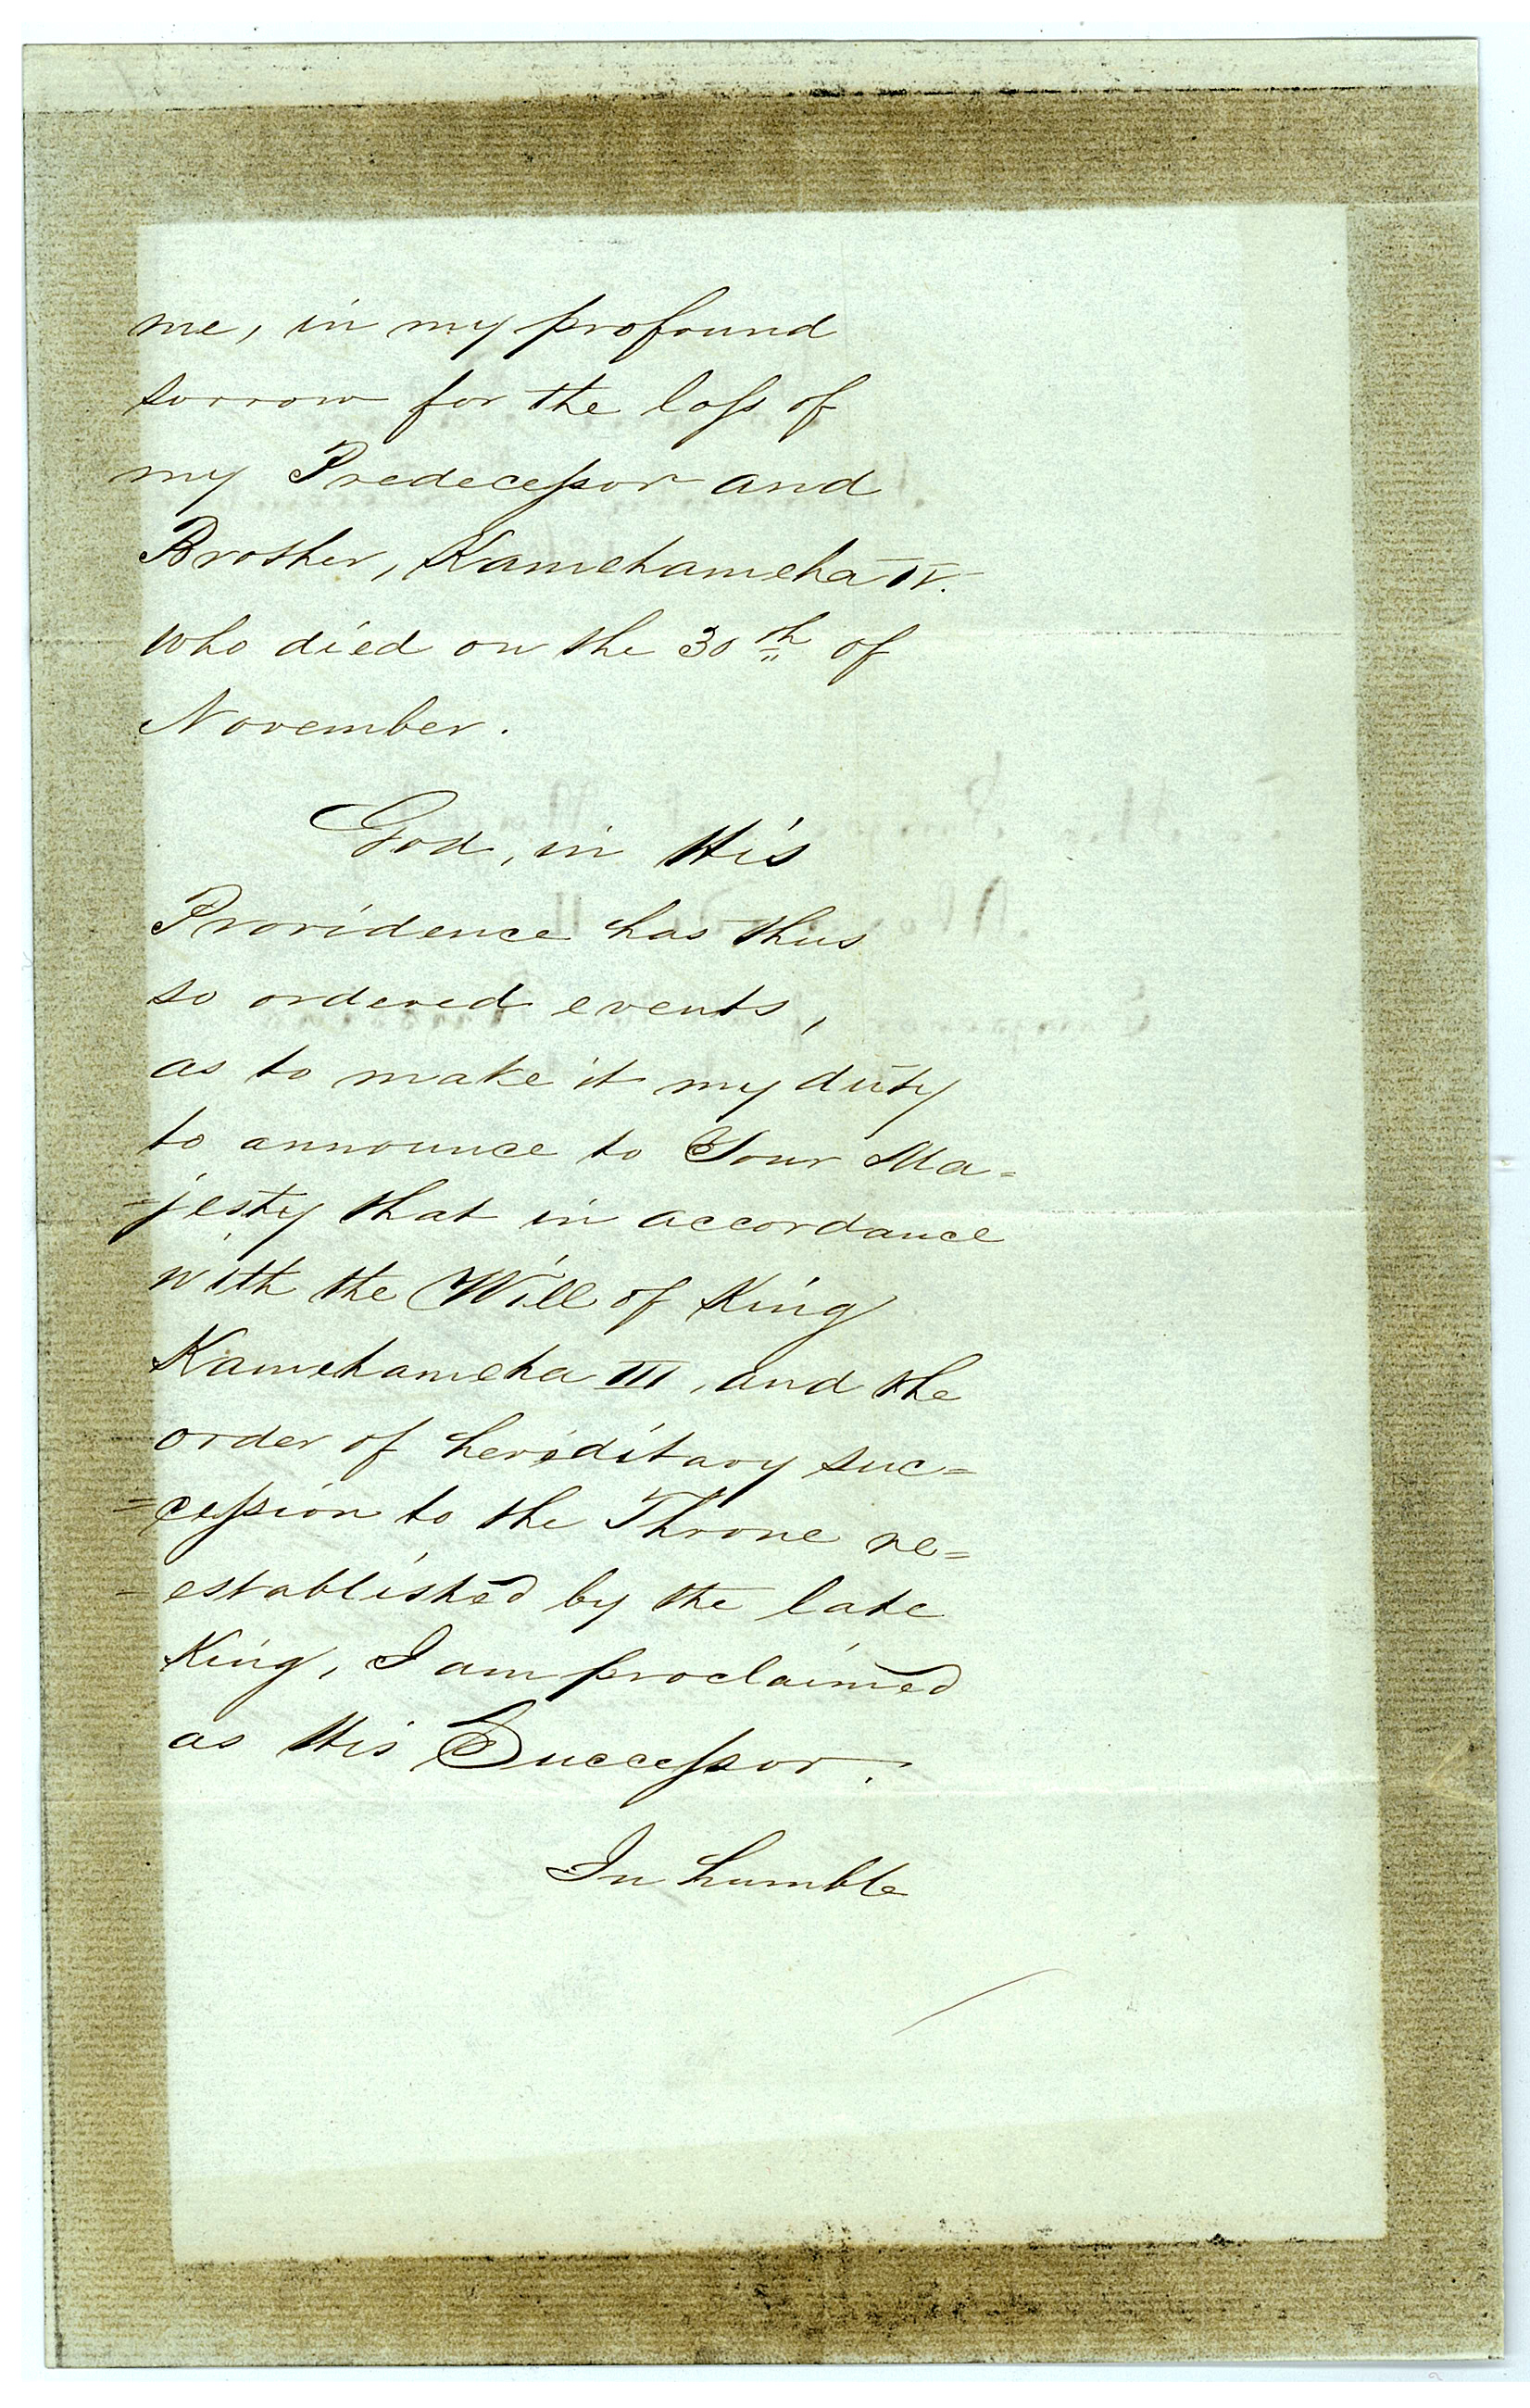 me, in my profound
sorrow for the loſs of
my Predeceſsor and
Brother, Kamehameha IV.
who died on the 30th of
November.
God, in His
Providence has thus
so ordered events,
as to make it my duty
to announce to Your Ma=
=jesty that in accordance
with the Will of King
Kamehameha III, and the
order of hereditary suc=
=ceſsion to the Throne re=
=established by the late
King, I am proclaimed
as His Succeſsor.
In humble